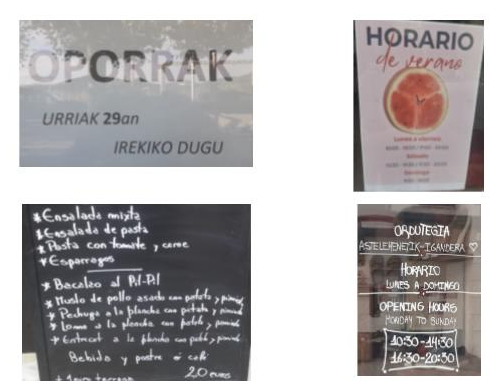 OPORRAK
URRIAK 29an
IREKIKO DUGU
HORARIO
de verano
Lunes a viernes
Sábado
Domingo
* Ensalada mixta
* Ensalada de pasta
* Pasta con tomate y carne
* Esparragos
* Bacalao al Pil-Pil
* Muslo de pollo asado con patata y
* Pechuga a la plancha con patata y
* Lomo a la plancha con patat, y
* Entrecot a la plancha con patat, y
Bebida y postre o café
20 euros
ORDUTEGIA
ASTELEHENETIK-IGANDERA ♡
HORARIO
LUNES A DOMINGO
OPENING HOURS
MONDAY TO SUNDAY
10:30-14:30
16:30-20:30